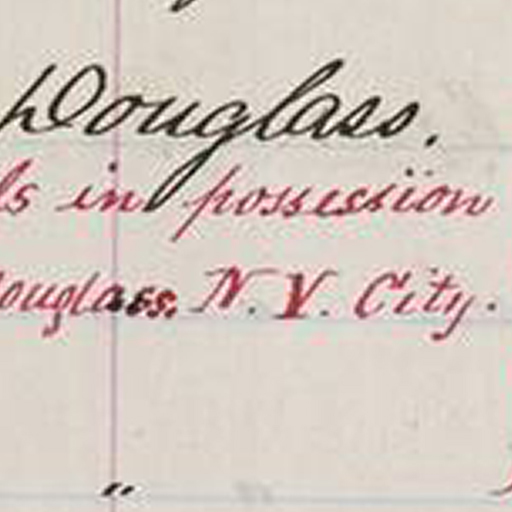 Douglass.
ls in possession
ouglass, N. Y. City.
"